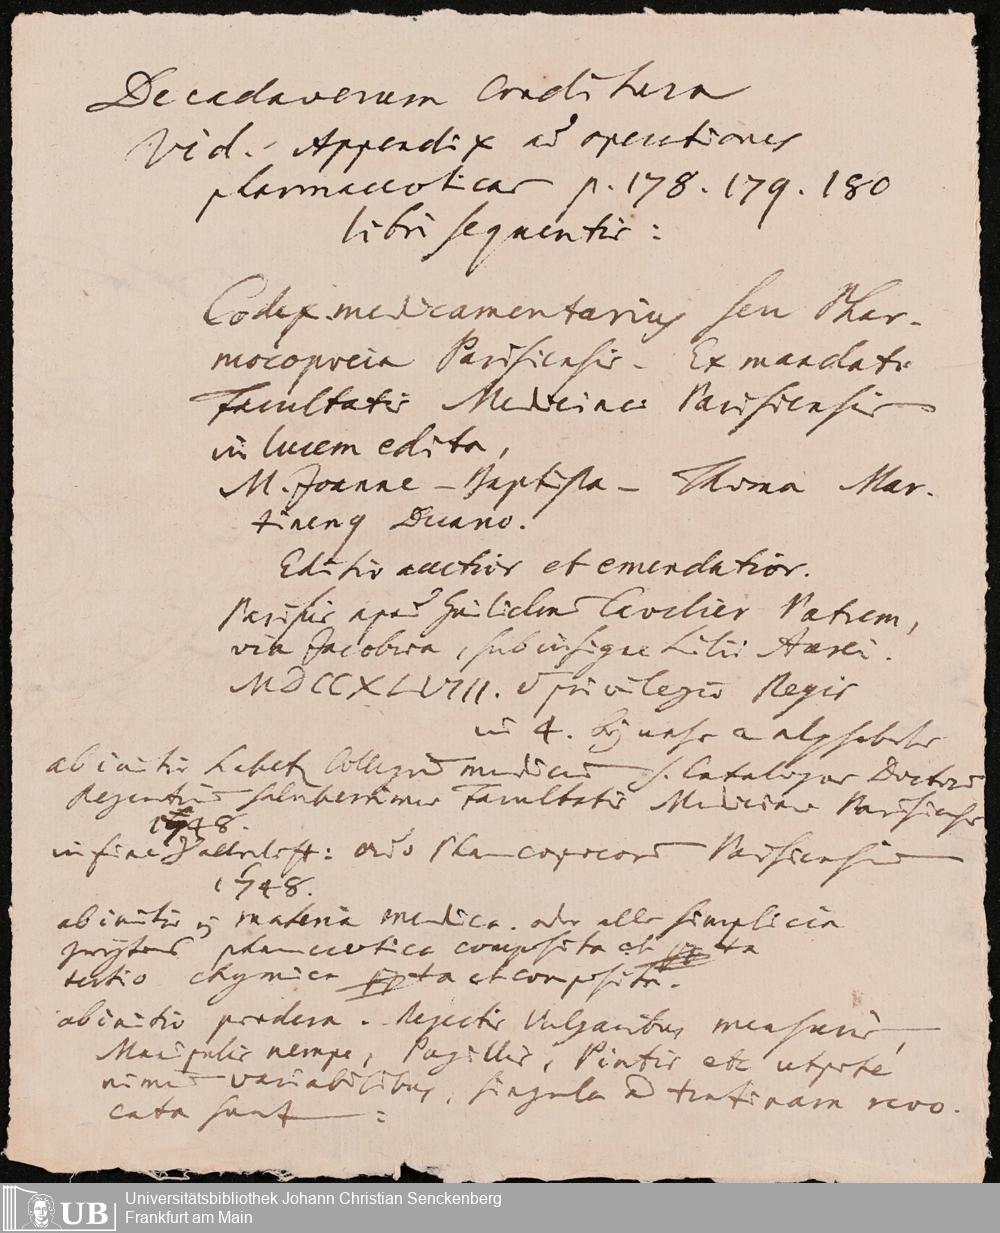 De cadaverum conditura
Vid. Appendix ad operationes
pharmaceuticas p. 178. 179. 180
libri sequentis:
Codex medicamentarius seu Phar-
macopoeia Parisiensis. Ex mandato
Facultatis Medicinae Parisiensis
in lucem edita,
M. Joanne-Baptista-Thoma Mar-
tinenq Decano.
Editio auctior et emendatior.
Parisiis apud Guilielmum Cavelier Patrem,
via Jacobaea, sub insigne Lilii Aurei.
MDCCXLVIII. privilegio Regis
in 4. alphabeth
ab initio Collegium medicum s. Catalogus Doctorum
Regentium saluberrimae Facultatis Medicinae Parisiensis
1748.
in fine : ordo Pharmacopoeorum Parisiensium
1748.
ab initio materia medica. oder alle simplicia
zweytens pharmaceutica composita et ppta
tertio chymica ppta et composita.
ab initio pondera. Rejectis vulgaribus mensuris,
Manipulis nempe, Pugillis, Pintis etc utpote
nimium variabilibus, singula ad trutinam revo-
cata sunt:
Universitätsbibliothek Johann Christian Senckenberg
Frankfurt am Main
UB